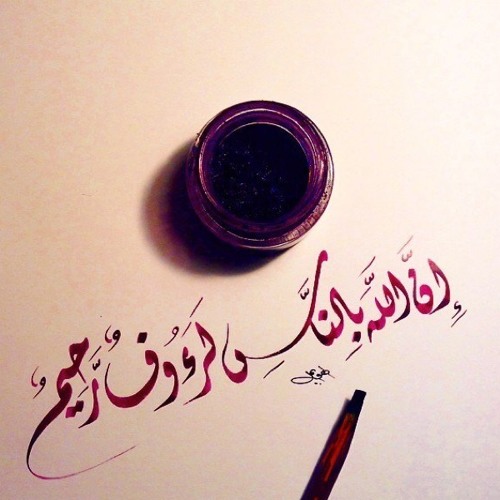 إِنَّ اللَّهَ بِالنَّاسِ لَرَءُوفٌ رَّحِيمٌ